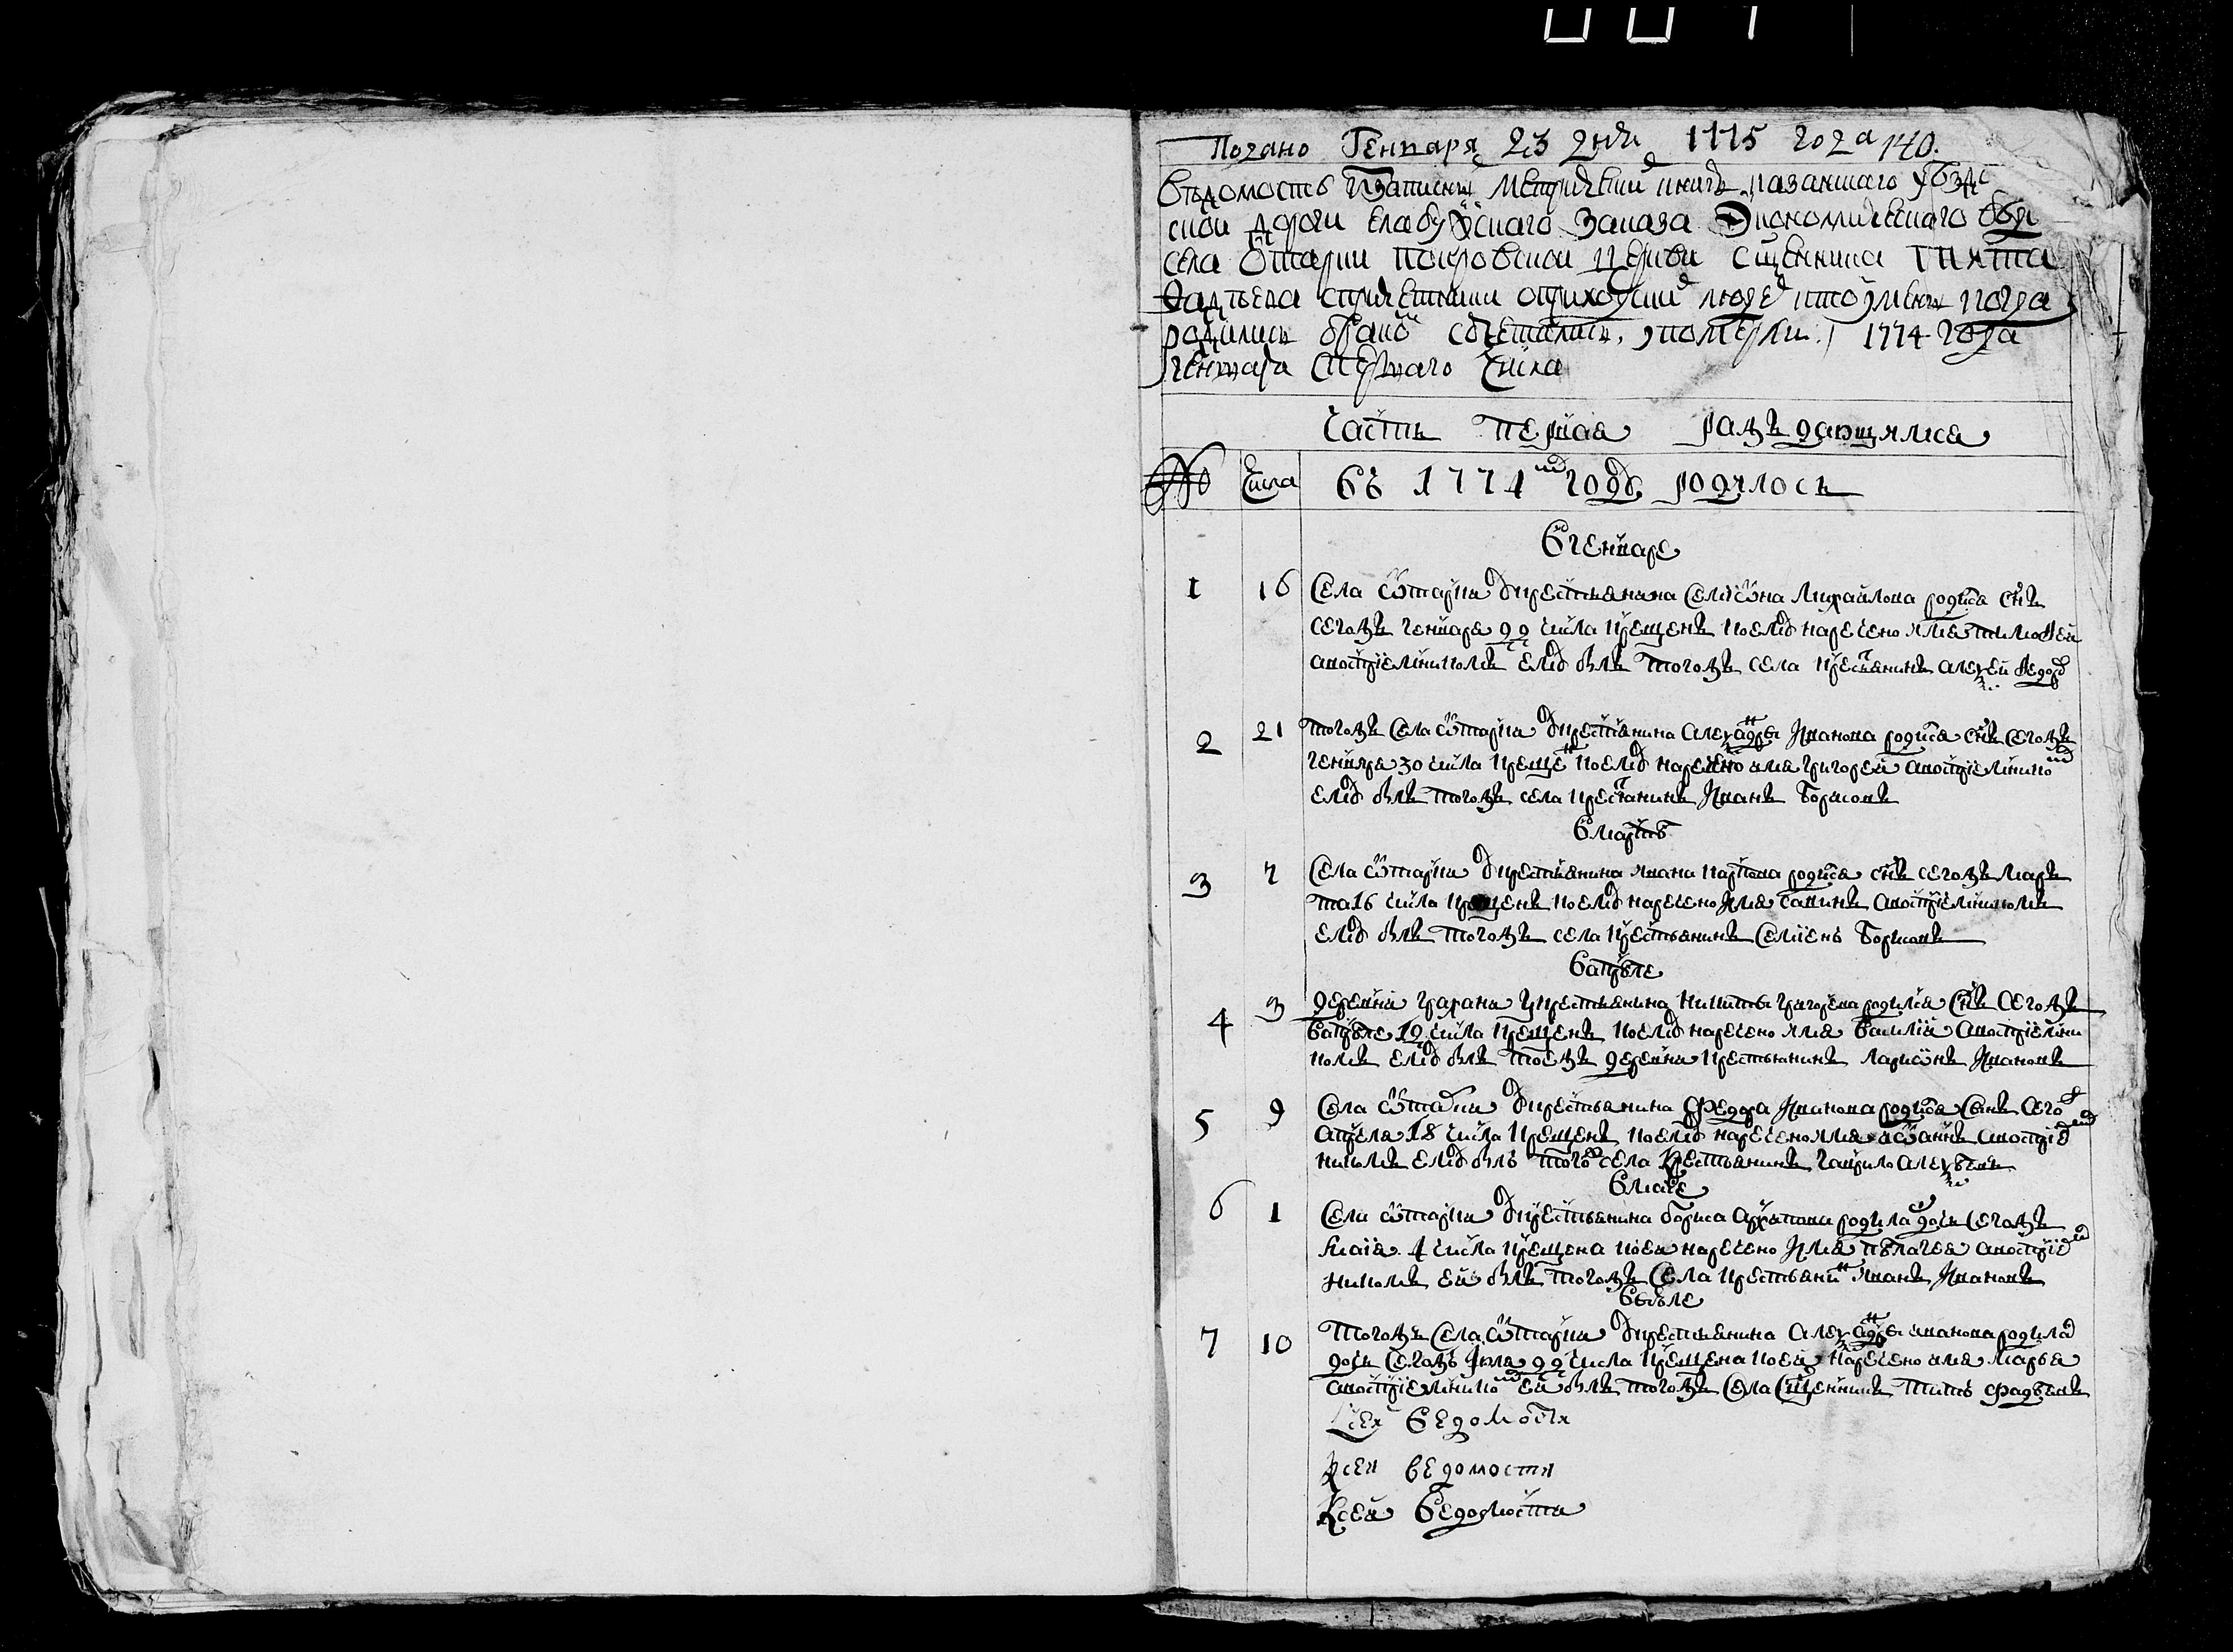 Подано Генваря 23 дня 1775 года 140.
Ведомость записки метрической книги казанскаго уезда
ской дороги Елабужскаго заказа Экономическаго ведо
села Отарки Покровской церкви сщенника Тита
Фадеева с причетники о приходских людех кто имяны когда
родились браком сочетались, и померли 1774 года
генваря с перваго числа
Часть первая раждающимся
№ Числа Въ 1774м годе родилось
В генваре
1 16 Села Отарки у крестьянина Семиона Михайлова родился снъ
сегожъ генваря 22 числа крещенъ коему наречено имя Тимофей
а восприемникомъ ему былъ тогожъ села крестьянинъ Алексей Федоров
2 21 тогожъ села Отарки у крестьянина Александра Иванова родился снъ сегожъ
генваря 30 числа крещен коему наречено имя Григорей а восприемником
ему былъ тогожъ села крестьянинъ Иванъ Борисовъ
В марте
3 7 Села Отарки у крестьянина Ивана Карпова родился снъ сегожъ мар
та 16 числа крещенъ коему наречено имя Савинъ а восприемникомъ
ему былъ тогожъ села крестьянинъ Семиенъ Борисовъ
В апреле
4 3 деревни Грахана у крестьянина Никиты Григорева родился снъ сегожъ
в апреле 12 числа крещенъ коему наречено имя Василий а восприемни
комъ ему былъ тоежъ деревни крестьянинъ Ларионъ Ивановъ
5 9 Села Отарки у крестьянина Федора Иванова родился сынъ сегож
апреля 18 числа крещенъ коему наречено имя Иоаннъ а восприем
никомъ ему былъ того села крестьянинъ Гаврило Алексеевъ
В мае
6 1 Села Отарки у крестьянина Бориса Архипова родилась дочь сегожъ
мая 4 числа крещена коей наречено имя Пелагея а восприем
никомъ ей былъ тогожъ села крестьянин Иванъ Ивановъ
В июле
7 10 Тогожъ села Отарки у крестьянина Александра Иванова родилас
дочь сегожъ июля 22 числа крещена коей наречено имя Марья
а восприемником ей былъ тогожъ села сщенникъ Титъ Фадеевъ
К сей ведомости
К сей ведомости
К сей ведомости